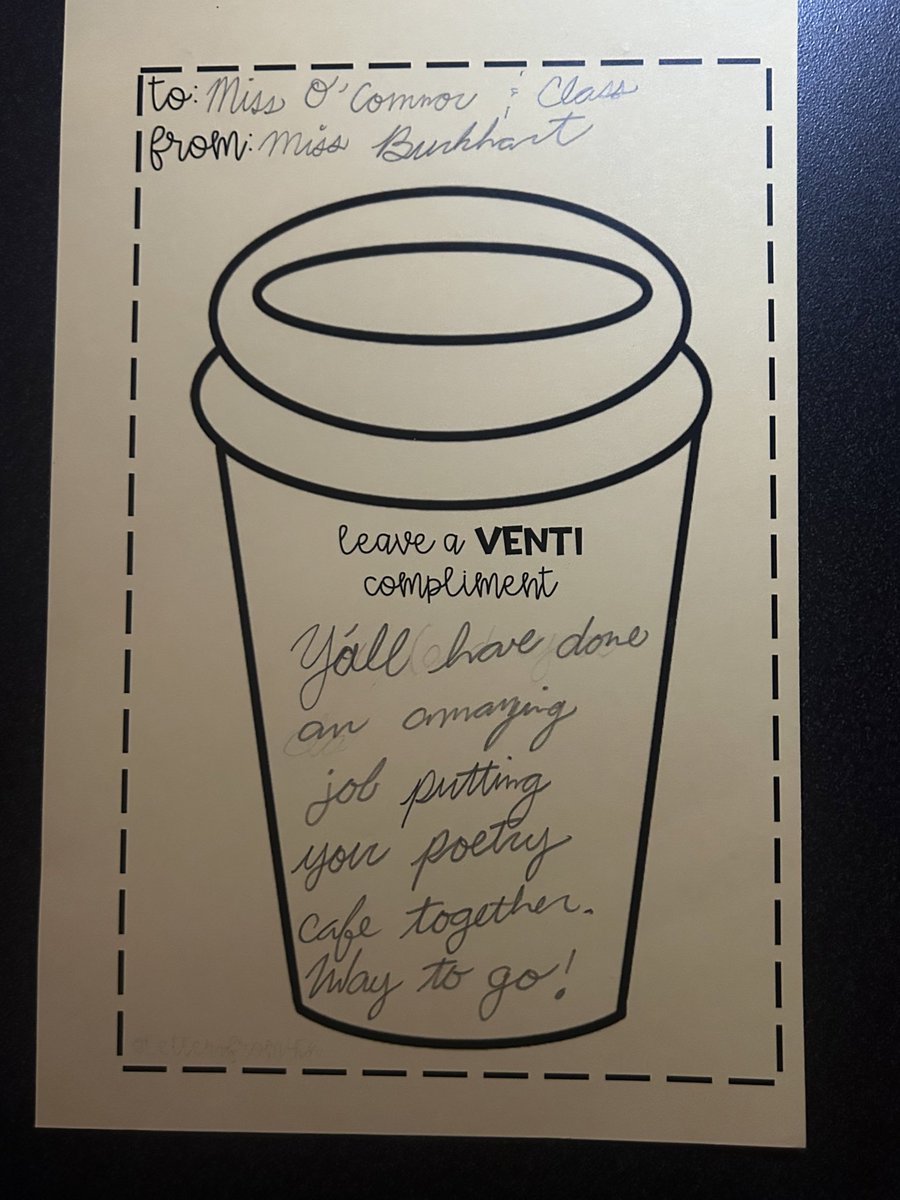 to: Miss O'Connor & Class
from: Miss Burkhart
leave a VENTI
compliment
Y'all have done
an amazing
job putting
your poetry
cafe together.
Way to go!